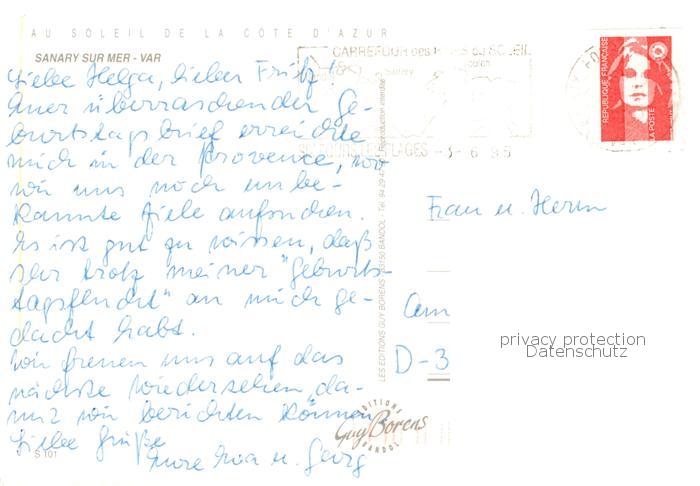 AU SOLEIL DE LA CÔTE D'AZUR
SANARY SUR MER - VAR
Liebe Helga, lieber Fritz!
Euer überraschender Ge-
burtstagsbrief erreichte
mich in der Provence, wo
wir uns noch unbe-
kannte Ziele aufsuchen.
Es ist gut zu wissen, daß
Ihr trotz meiner "Geburts-
tagsflucht" an mich ge-
dacht habt.
Wir freuen uns auf das
nächste Wiedersehen, da-
mit wir berichten können
Liebe Grüße
Eure Eva u. Georg
S 101
CARREFOUR des
-3-6 95
REPUBLIQUE FRANÇAISE
LA POSTE
Frau u. Herrn
Am
D-3
privacy protection
Datenschutz
LES EDITIONS GUY BORENS
83150 BANDOL
Reproduction interdite
EDITIONS
Guy Borens
BANDOL